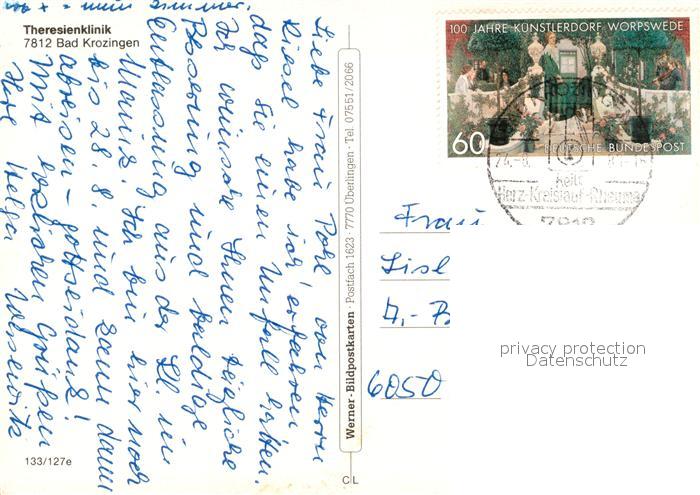 + = mein Zimmer.
Theresienklinik
7812 Bad Krozingen
Liebe Frau Pohl, von Herrn
Kiesel habe ich erfahren
daß Sie einen Unfall hatten.
Ich wünsche Ihnen
Besserung und baldige
Entlassung aus der Kl. in
Ich bin hier noch
bis 28. 8. und dann
abreisen – gottseidank!
Mit herzlichen Grüßen
Ihre Helga
133/127e
Werner-Bildpostkarten · Postfach 1623 · 7770 Überlingen · Tel. 07551/2066
CL
100 JAHRE KÜNSTLERDORF WORPSWEDE
60
DEUTSCHE BUNDESPOST
heilt
Herz-Kreislauf-Rheuma
7812
Frau
Lisl
6050
privacy protection
Datenschutz